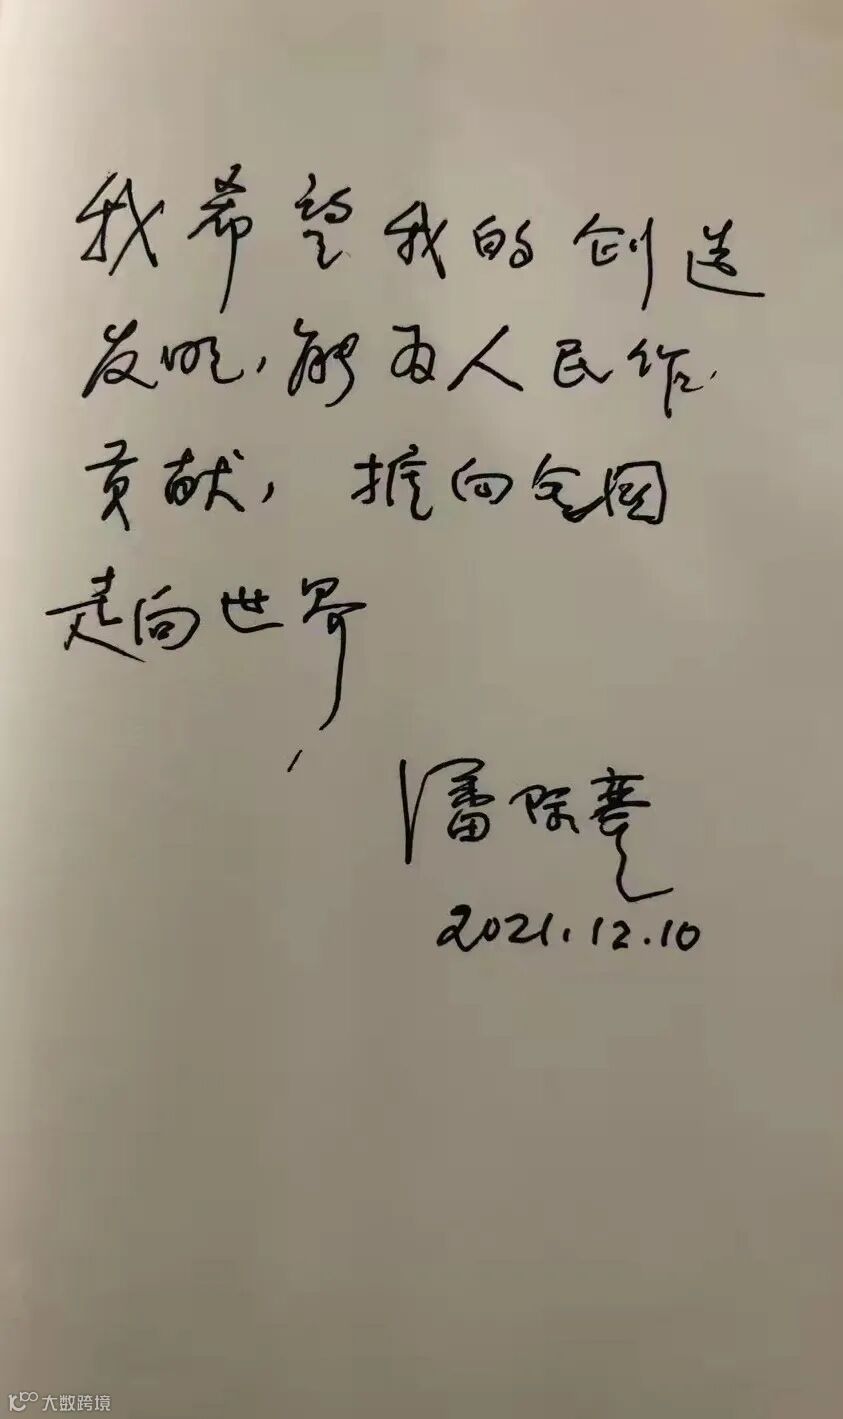 我希望我的创造
发明，能为人民作
贡献，推向全国
走向世界
潘际銮
2021.12.10
大数跨境